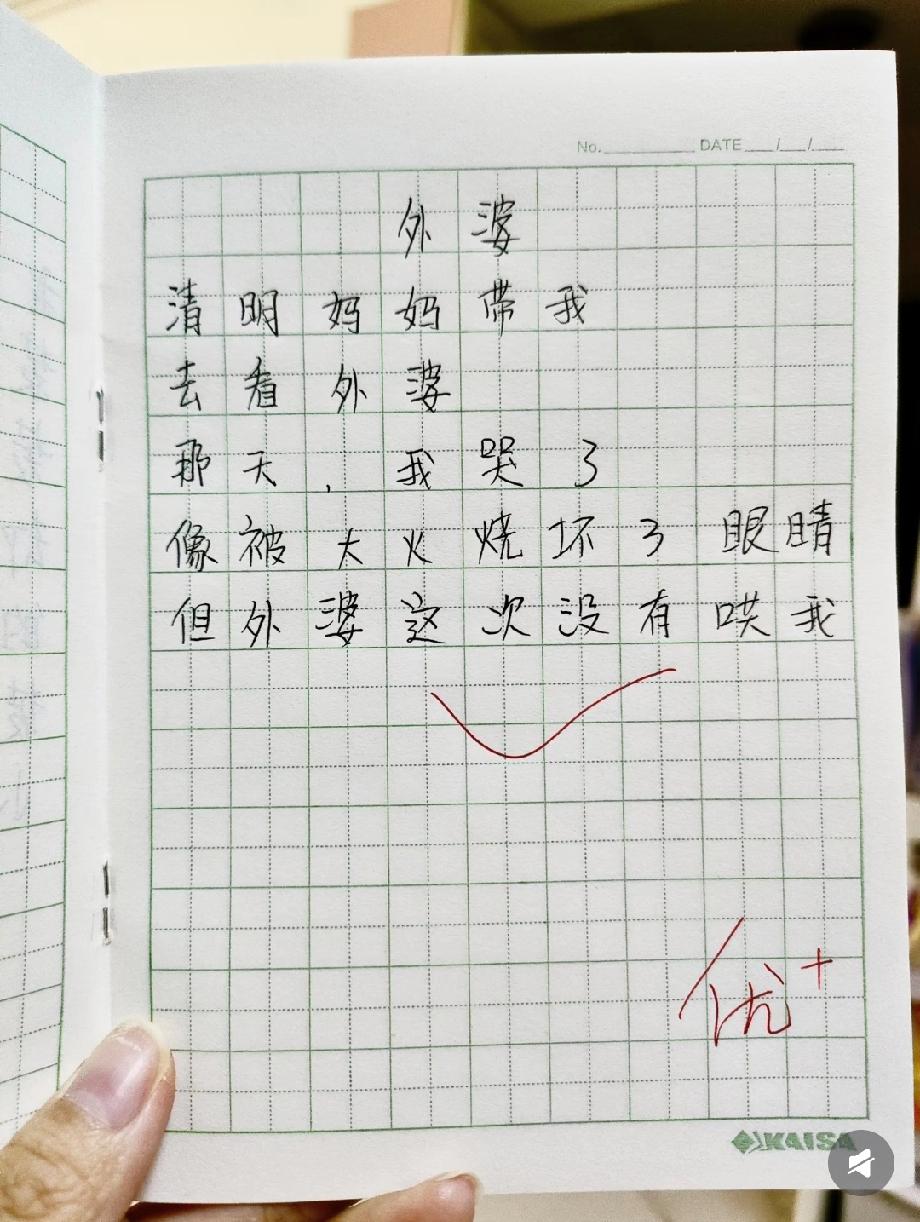 No. DATE / /
外婆
清明妈妈带我
去看外婆
那天，我哭了
像被大火烧坏了眼睛
但外婆这次没有哄我
优+
KAISA